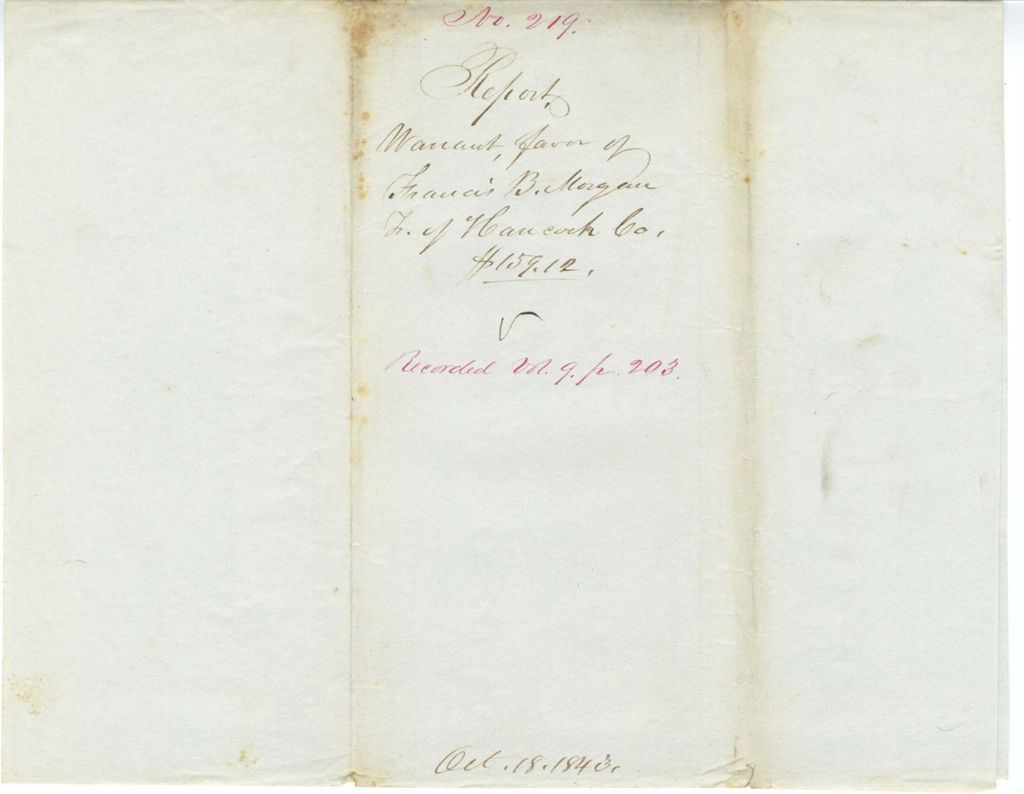 No. 219.
Report,
Warrant, favor of
Francis B. Morgan
Tr. of Hancock Co.
$159.12.
Recorded Vol. 9. p. 203.
Oct. 18. 1843.